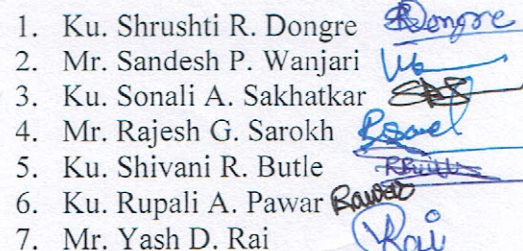 1. Ku. Shrushti R. Dongre Dongre
2. Mr. Sandesh P. Wanjari
3. Ku. Sonali A. Sakhatkar
4. Mr. Rajesh G. Sarokh
5. Ku. Shivani R. Butle
6. Ku. Rupali A. Pawar
7. Mr. Yash D. Rai Rai